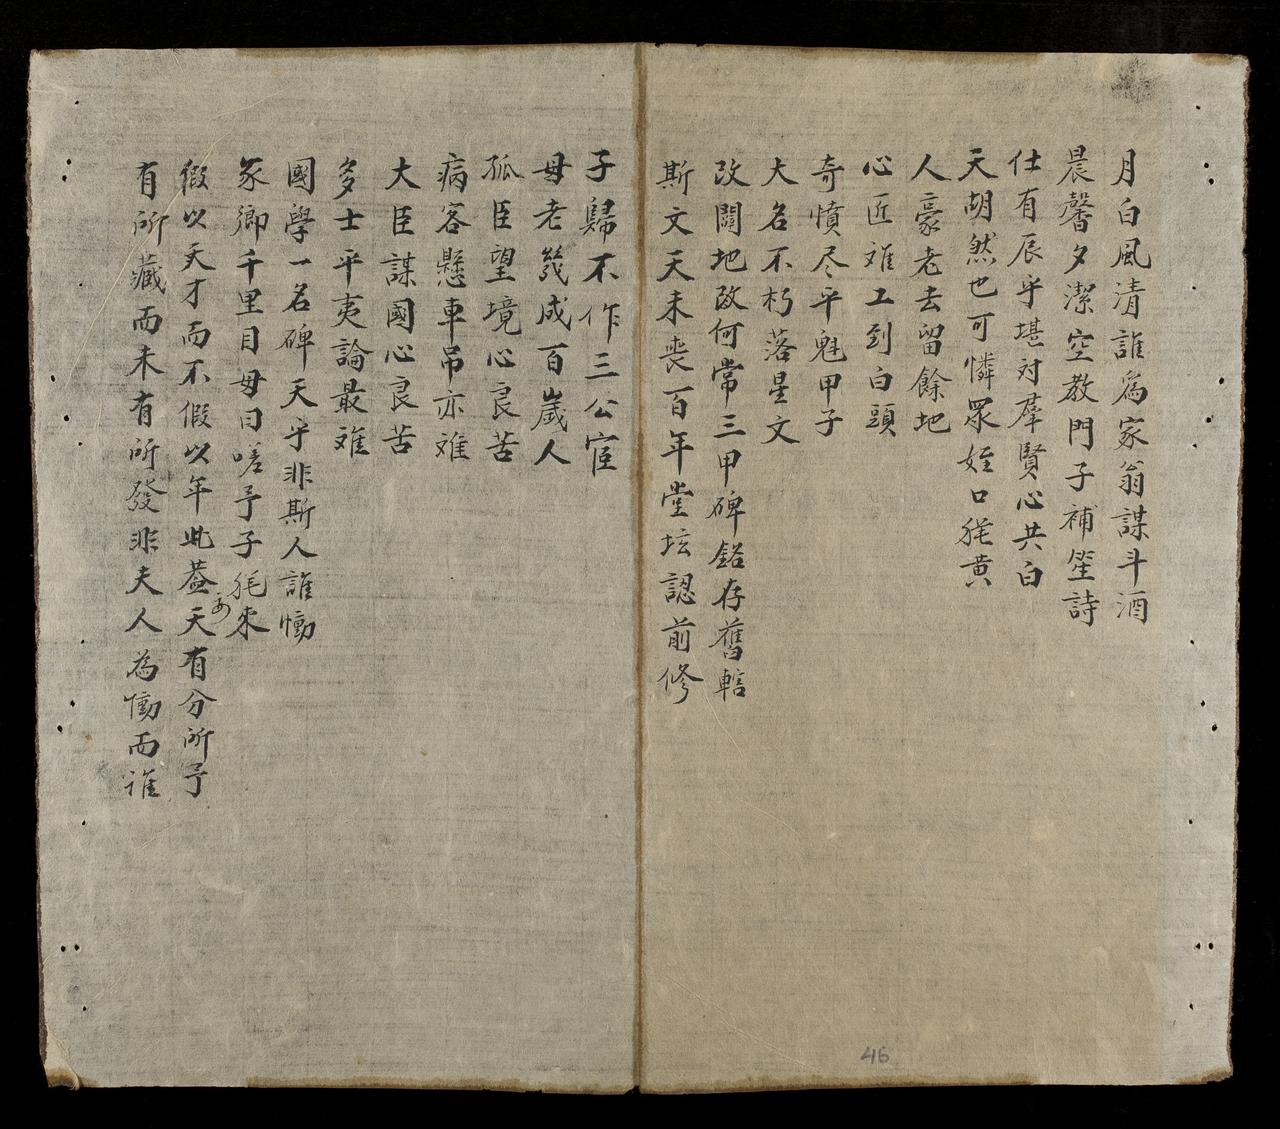 月白風清誰為家翁謀斗酒
晨馨夕潔空教門子補笙詩
仕有辰乎堪对羣賢心共白
天胡然也可憐眾姪口毵黄
人豪老去留餘地
心匠难工到白頭
奇憤尽平魁甲子
大名不朽落星文
改闘地改何常三甲碑銘存舊轄
斯文天未丧百年堂坛認前修
子歸不作三公宦
母老幾成百歲人
孤臣望境心良苦
病客懸車吊亦难
大臣謀國心良苦
多士平夷論最难
國學一名碑天乎非斯人誰慟
冢卿千里目母曰嗟予子來
假以天才而不假以年此蓋天有分所予
有所藏而未有所發非夫人為慟而誰
46